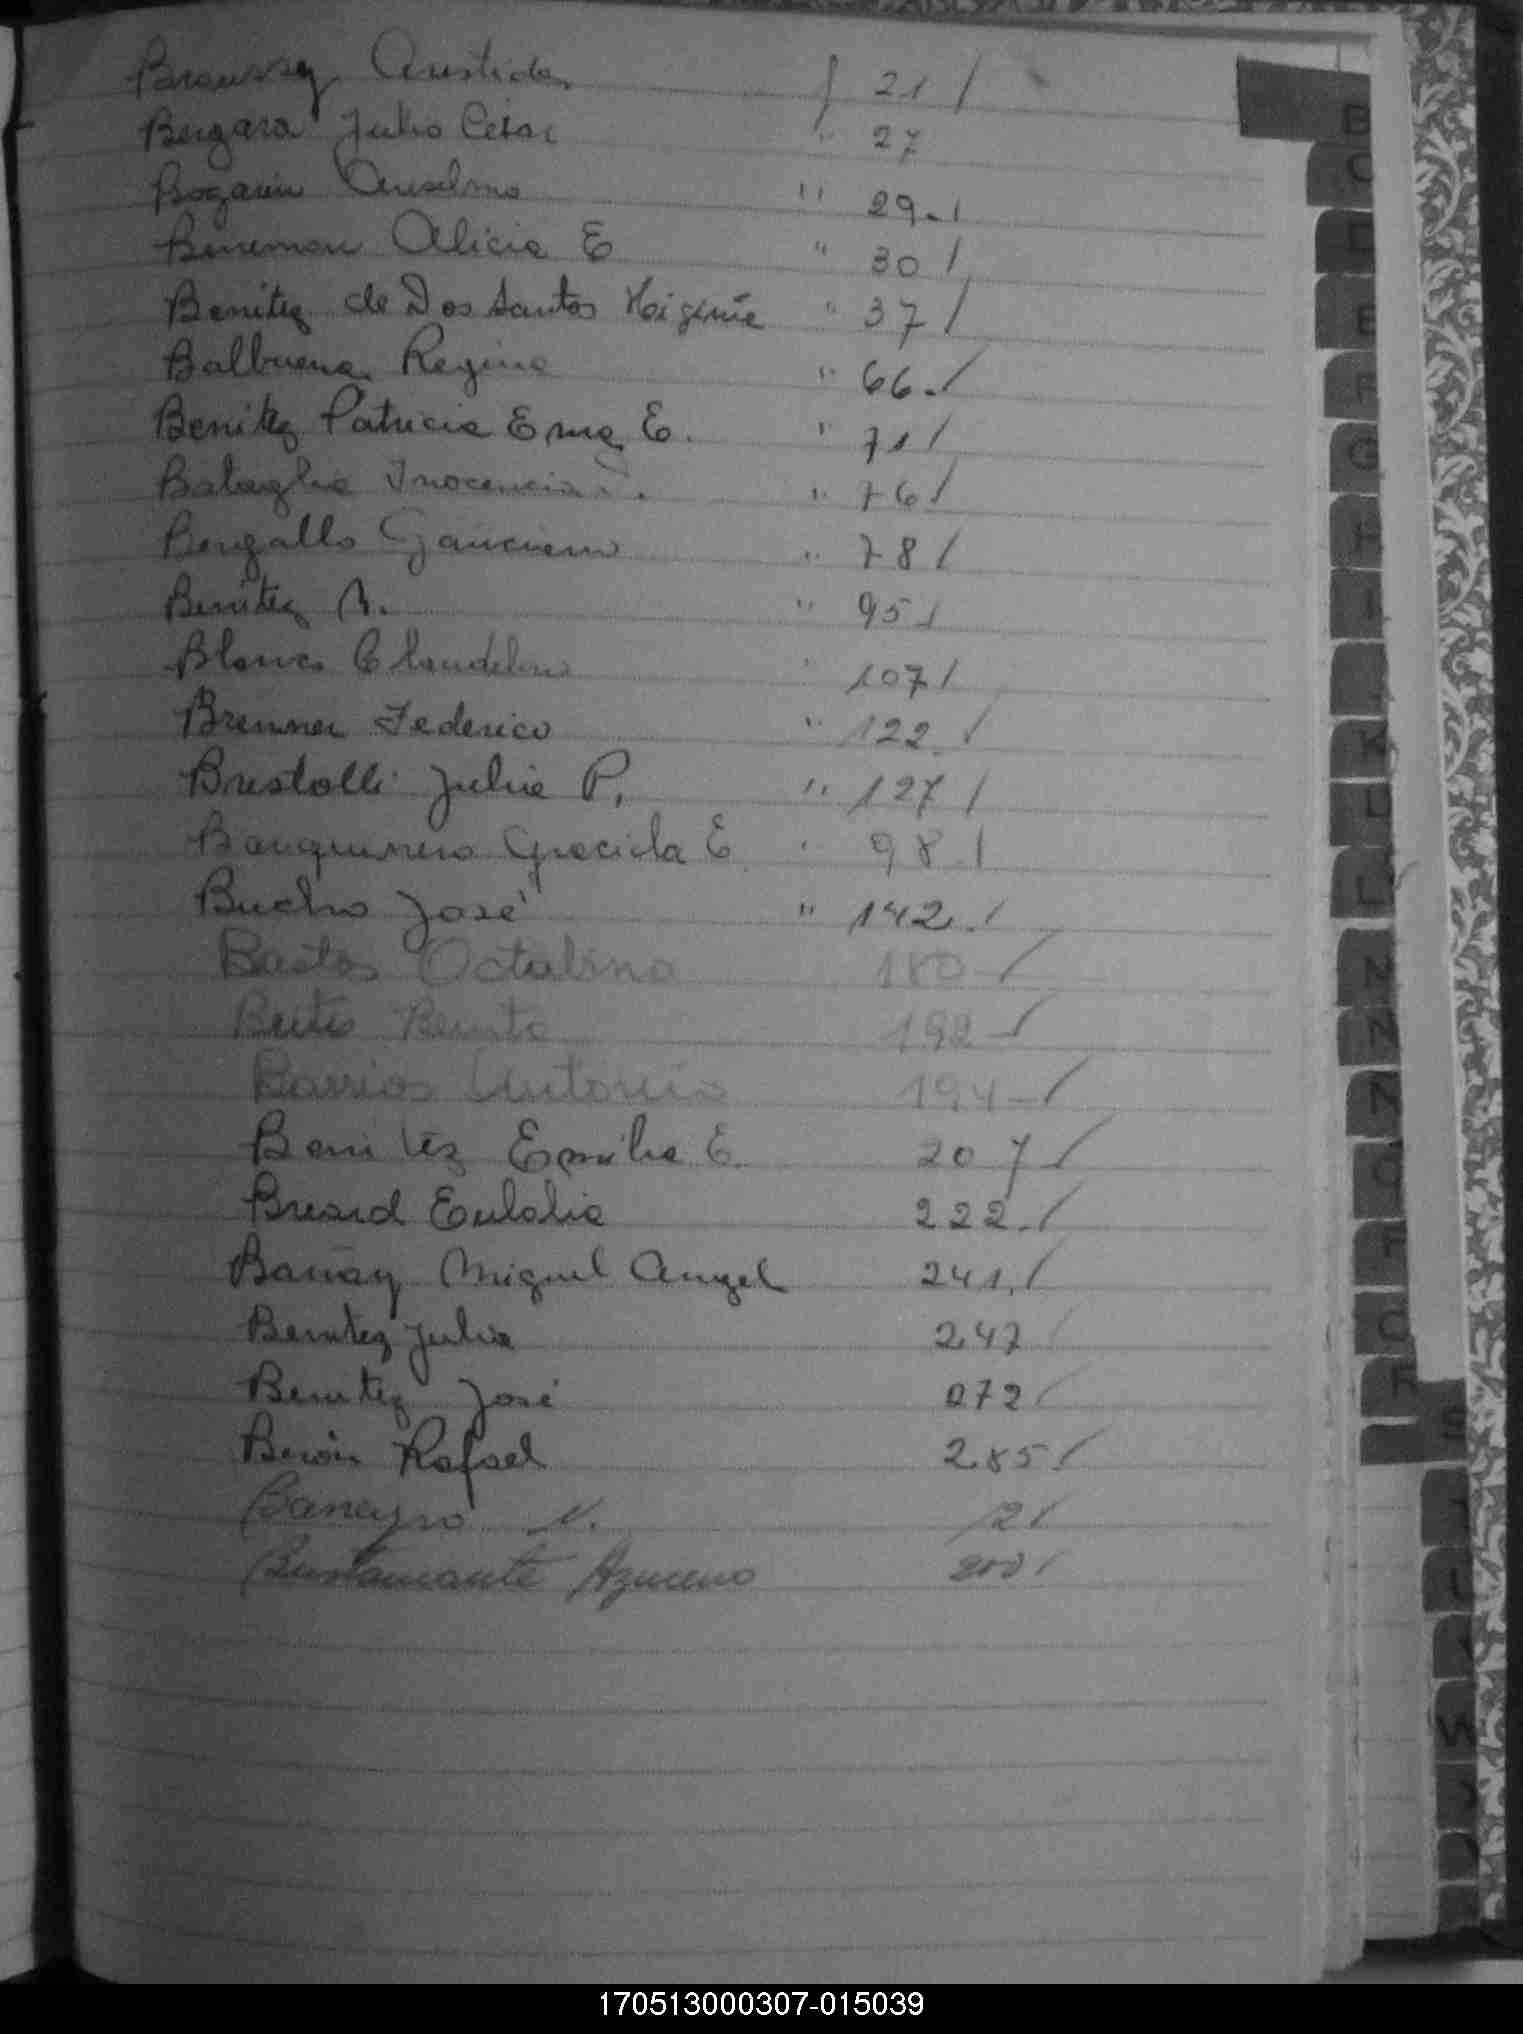 Aristides f 21 /
Bergara Julio César " 27
Bogarin Anselmo " 29. /
Alicia E " 30 /
Benitez de Dos Santos Higinia " 37 /
Balbuena Regina " 66. /
Benitez Patricia Ema E. " 71 /
Bataglia Inocencia " 76 /
Bergallo " 78 /
Benitez " 95 /
Blanco Claudelino " 107 /
Brenner Federico " 122. /
Bristolli Julia P. " 127 /
Barquinero Graciela E " 98. /
Bucho José " 142. /
Bastos Octalina 180 - /
Benito 192 - /
Barrios Antonia 194 - /
Benitez Emilia E. 207 /
Breard Eulalia 222. /
Miguel Angel 241. /
Benitez Julia 247 /
Benitez José 272 /
Rafael 285. /
N. 121
Bustamante Azucena 200 /
B
C
D
E
F
G
H
I
K
L
L
N
N
N
O
P
Q
R
S
W
170513000307-015039